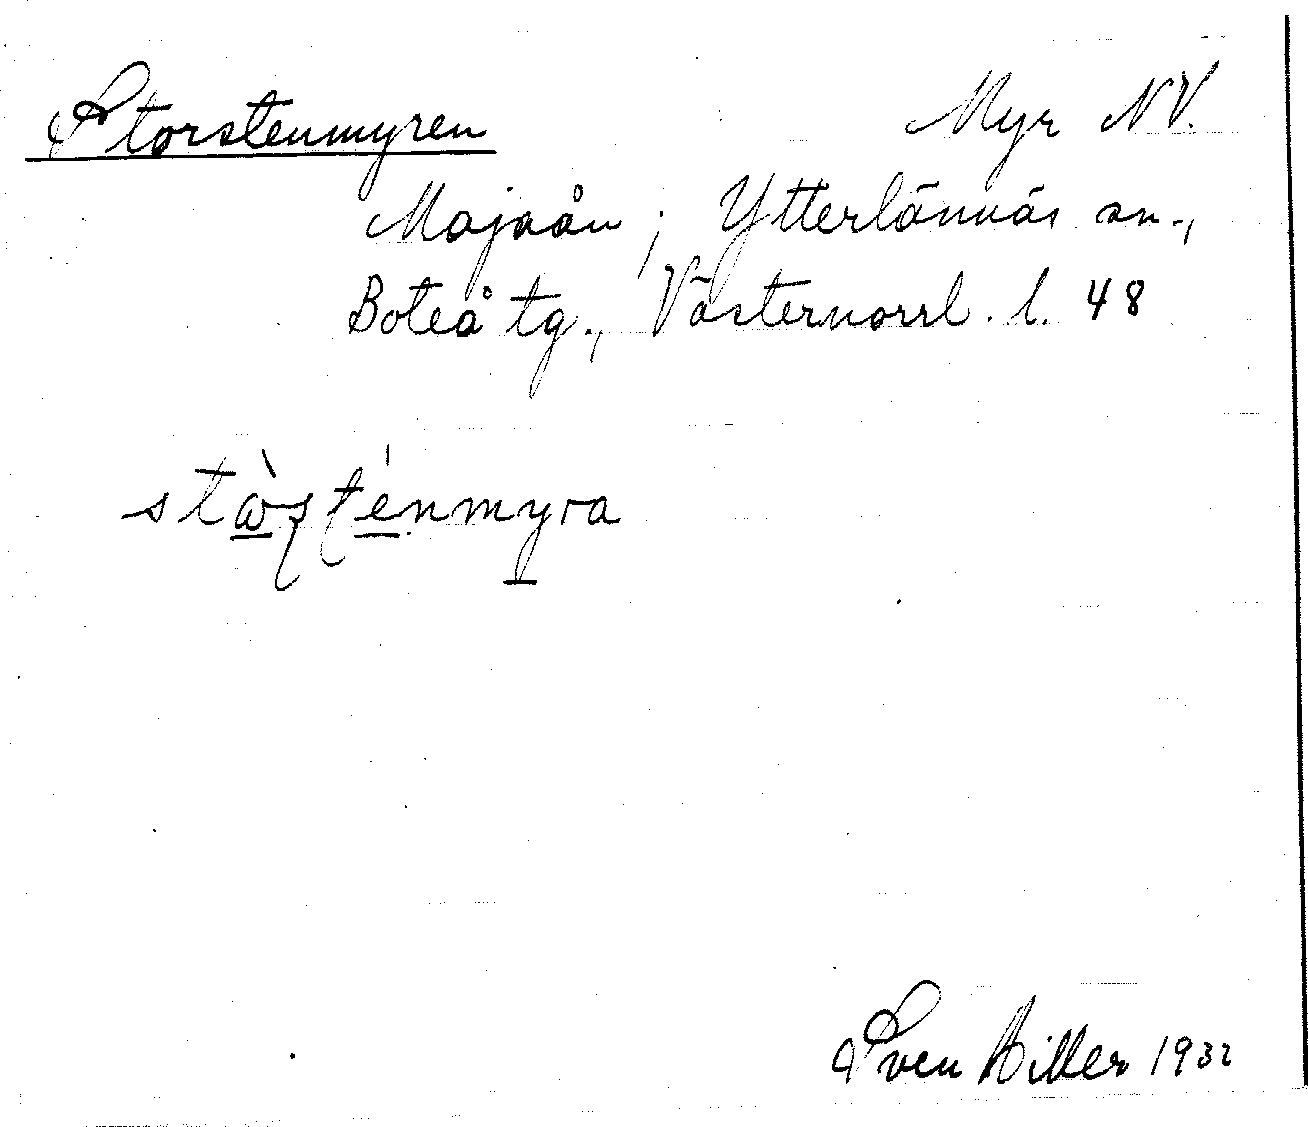 Storstenmyren Myr NV.
Majaån; Ytterlännäs sn.,
Boteå tg., Västernorrl. l. 48
stὼʂʈénmyra
Sven Hiller 1932